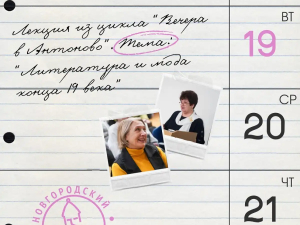 Лекция из цикла "Вечера
в Антоново". Тема:
"Литература и мода
конца 19 века"
ВТ
19
СР
20
ЧТ
21
НОВГОРОДСКИЙ